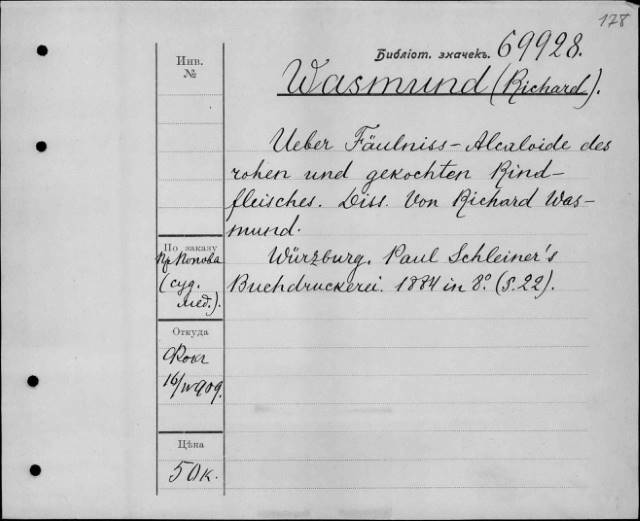 178
Библіот. значекъ. 69928.
Инв.
№
Wasmund (Richard).
Ueber Fäulniss-Alcaloide des
rohen und gekochten Rind-
fleisches. Diss. Von Richard Was-
mund.
Würzburg. Paul Schleiner's
Buchdruckerei. 1884 in 8.° (S. 22).
По заказу
Пр. Попова
(суд.
мед.).
Откуда
Фокк
16/IV 909.
Цѣна
50 к.